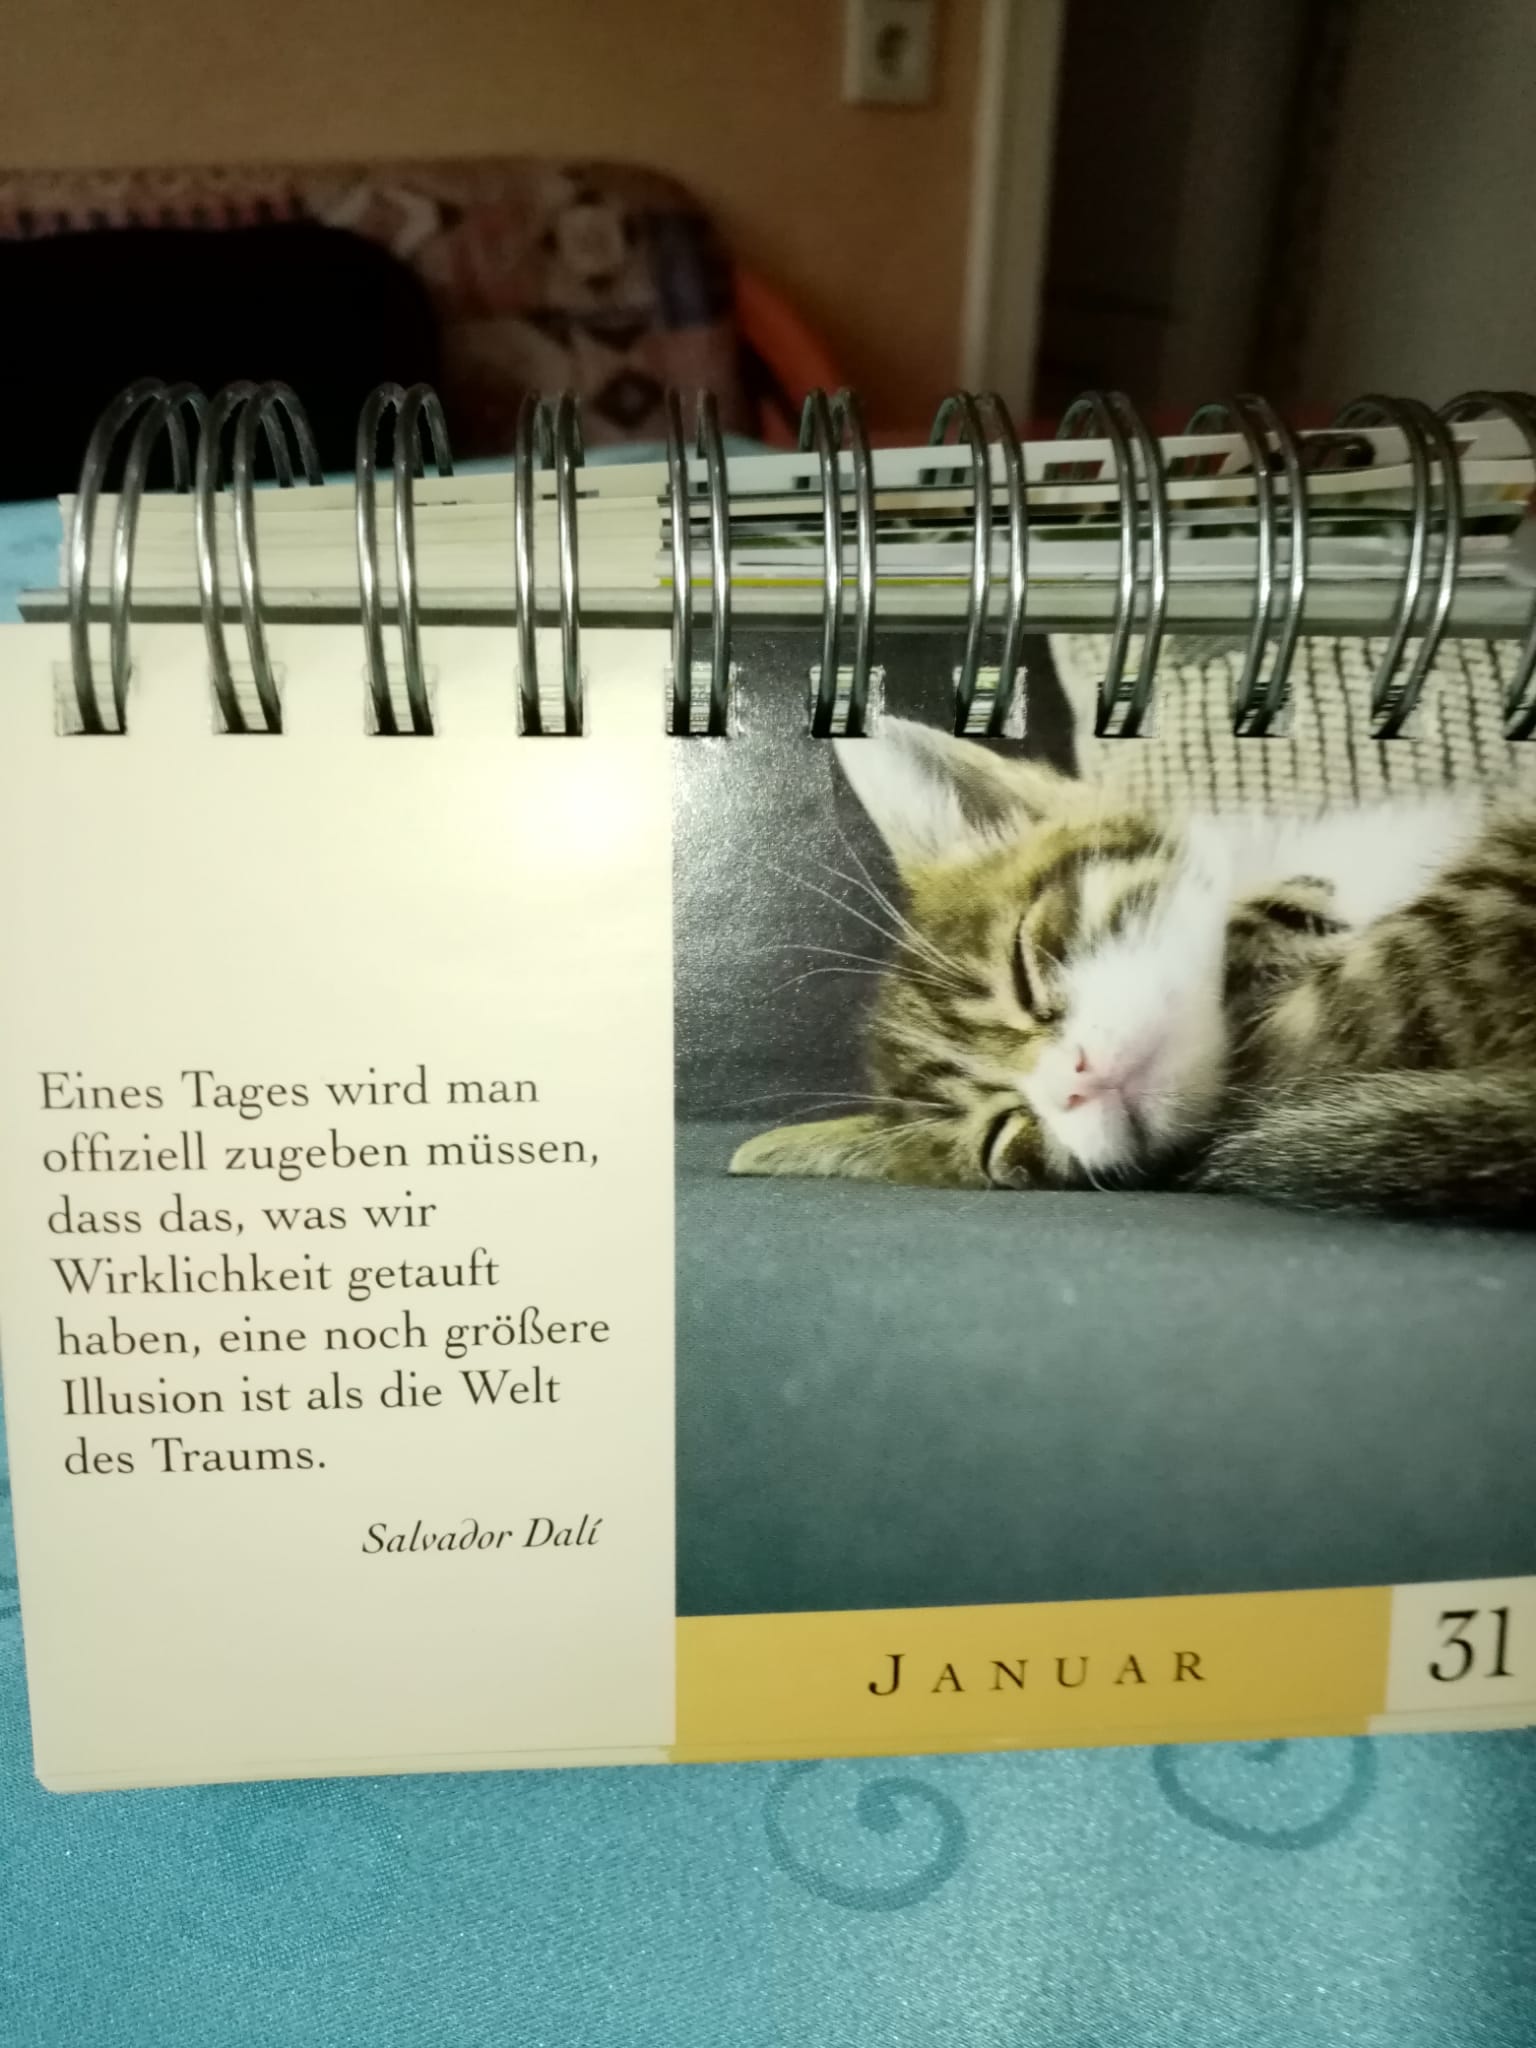 Eines Tages wird man
offiziell zugeben müssen,
dass das, was wir
Wirklichkeit getauft
haben, eine noch größere
Illusion ist als die Welt
des Traums.
Salvador Dalí
JANUAR 31